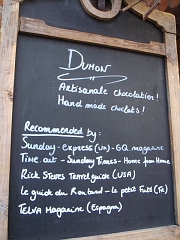 DUMON
Artisanale chocolatier!
Hand made choclats!
Recommended by:
Sunday-express (UK) - GQ magazine
Time.out - Sunday Times - Home from Home
Rick Steves Travel guide (USA)
Le guide du Routard - le petit Futé (Fr)
TELVA Magazine (Espagna)